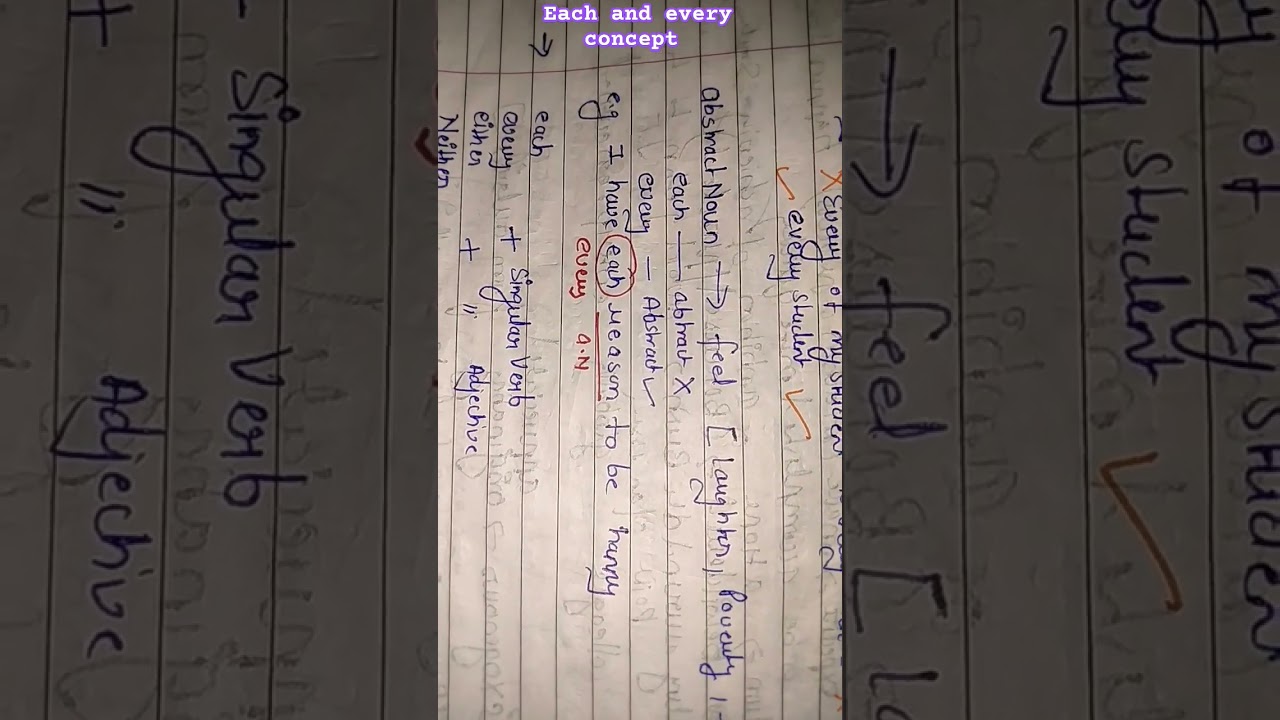 Each and every
concept
X Every of my studen
✓ every student ✓
abstract Noun → feel [ Laughter, Poverty, -
each — abtract X
every — Abstract ✓
e.g I have each reason to be happy
every a.N
→ each
every + Singular Verb
either + " Adjective
Neither